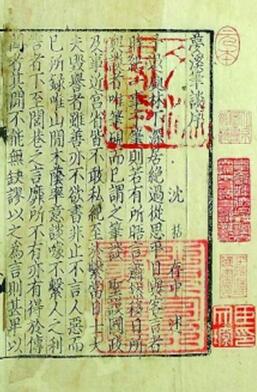 夢溪筆談序
沈括存中述
林下深居絕過從思平日與客言者
則若有所晤言蕭然移日所
與談者唯筆硯而已謂之筆談 聖謨國政
及事近宮省皆不敢私紀至於繫當日士大
夫毀譽者雖善亦不欲書非止不言人惡而
已所錄唯山間木蔭率意談噱不繫人之利
害者下至閭巷之言靡所不有亦有得於傳
聞者其間不能無缺謬以之為言則甚卑以